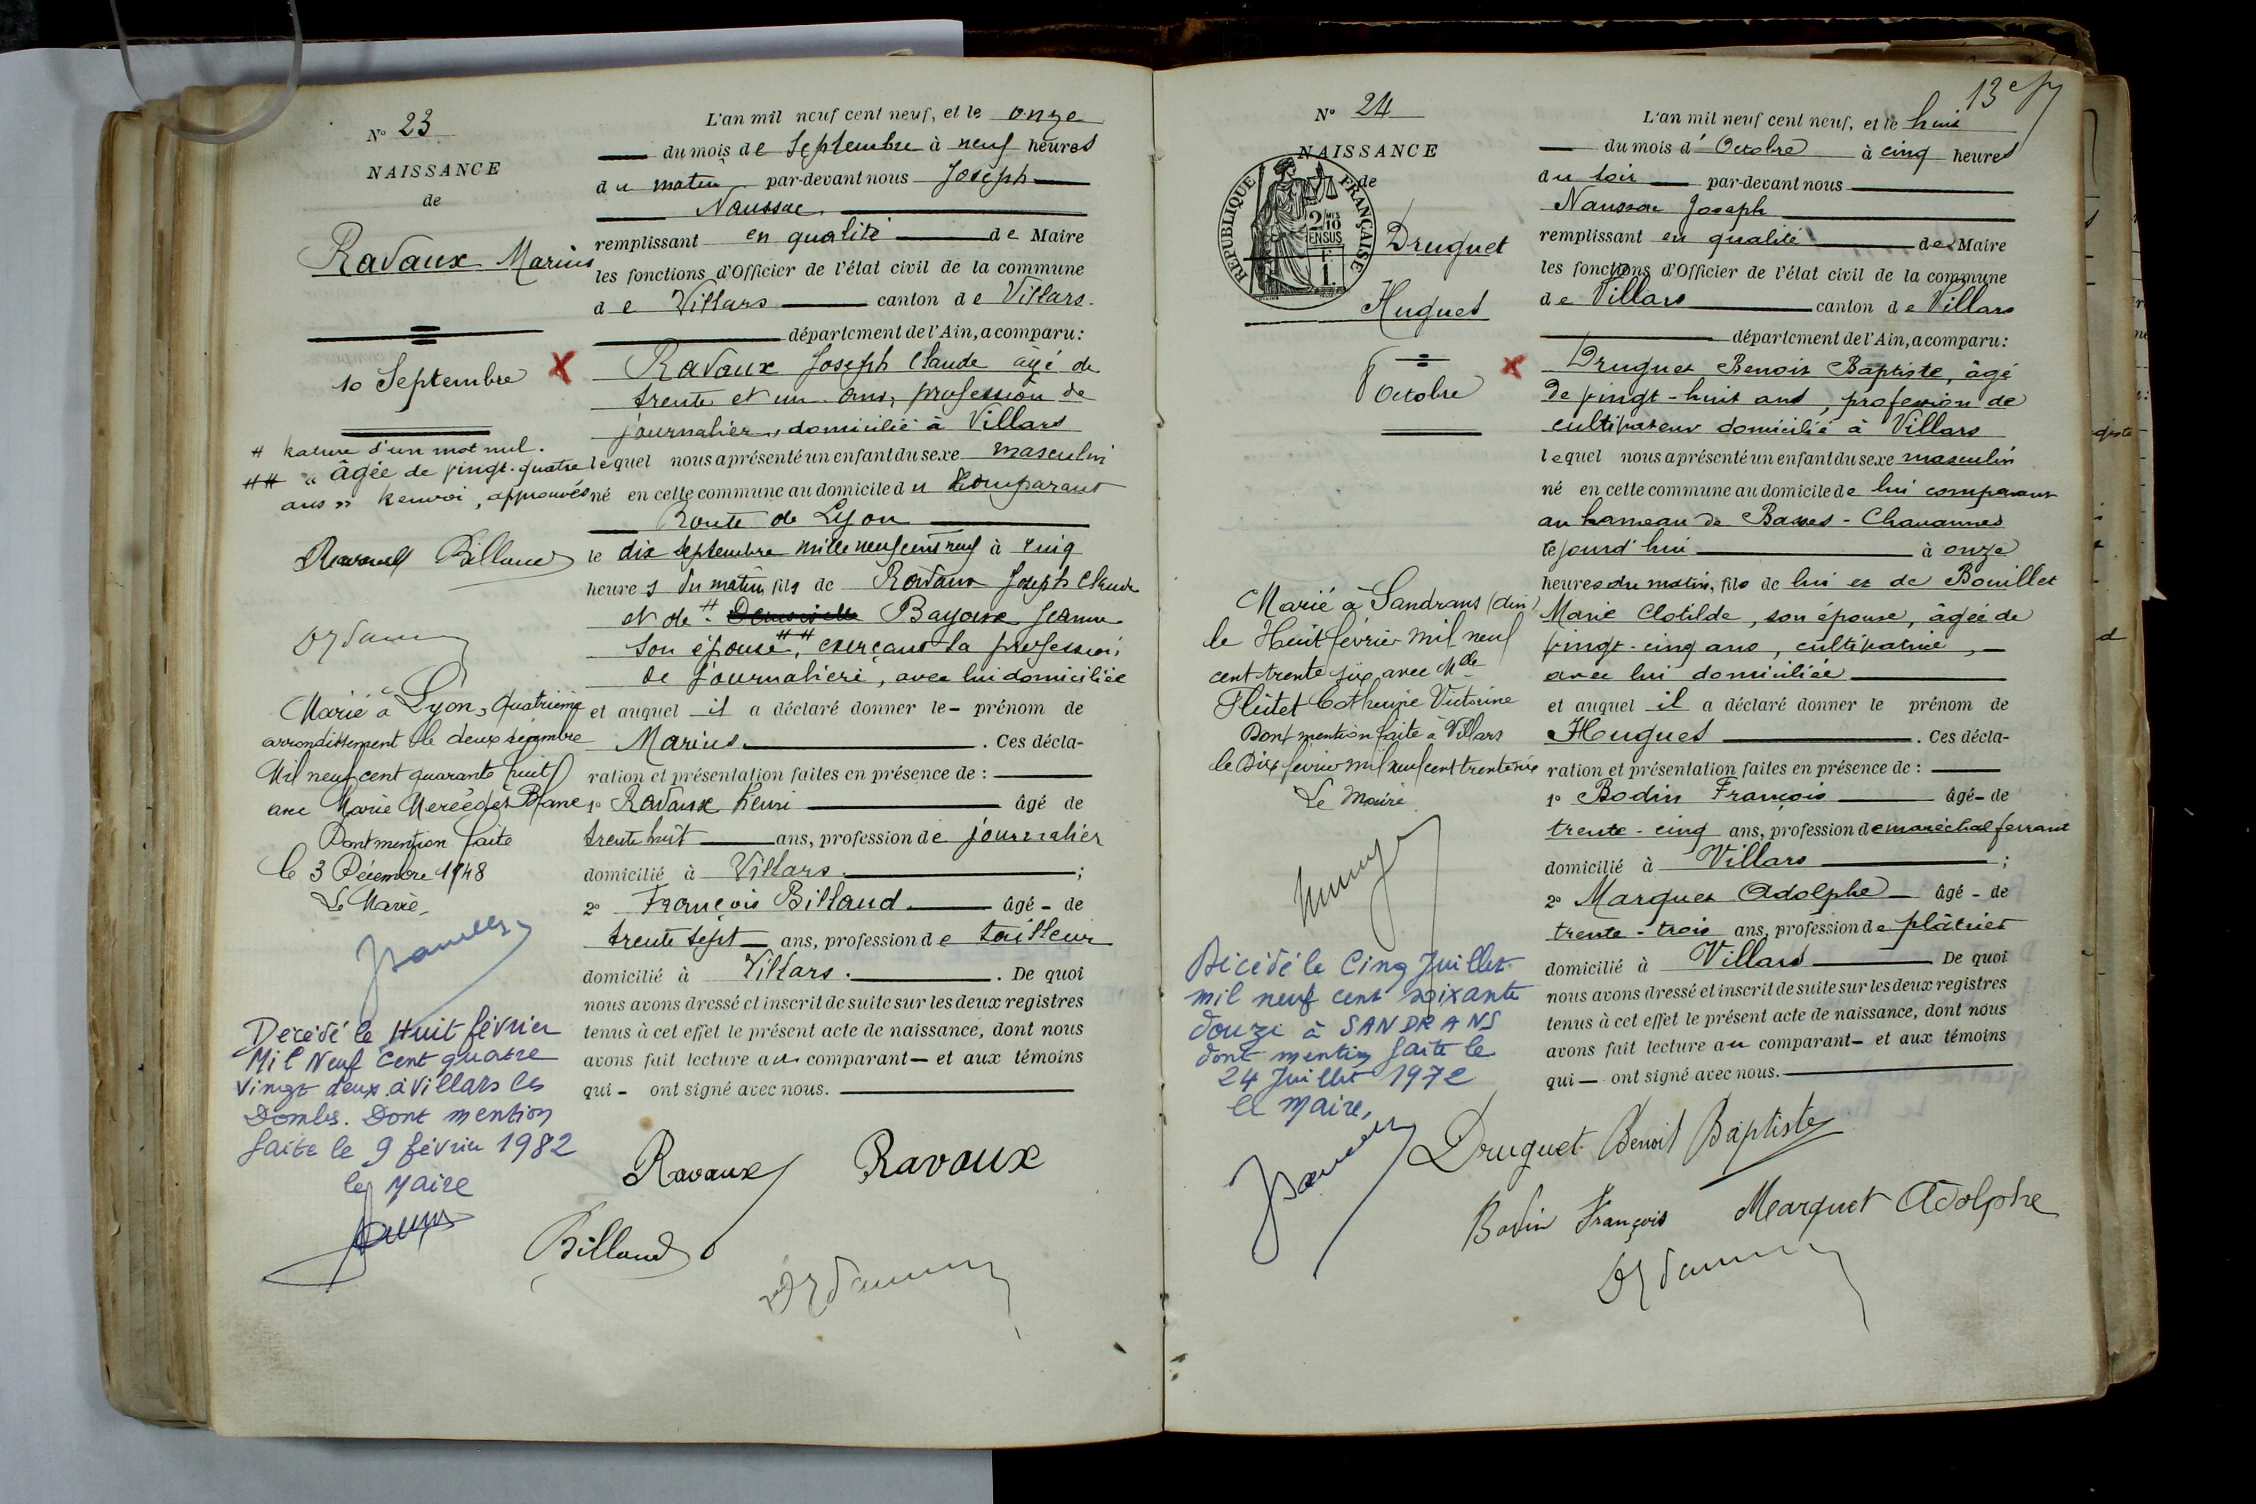 N° 23
NAISSANCE
de
Ravaux Marius
10 Septembre
# Rature d'un mot nul.
## " âgée de vingt-quatre
ans " Renvoi, approuvés
Ravaux Billaud
Marié à Lyon, quatrième
arrondissement le deux décembre
Mil neuf cent quarante huit
avec Marie Mercédès Blanc
Dont mention faite
le 3 Décembre 1948
Le Maire
Décédé le Huit février
Mil Neuf Cent quatre
vingt deux à Villars les
Dombes. Dont mention
faite le 9 février 1982
le Maire
L'an mil neuf cent neuf, et le onze
du mois de Septembre à neuf heures
du matin par-devant nous Joseph
Naussac
remplissant en qualité de Maire
les fonctions d'Officier de l'état civil de la commune
de Villars canton de Villars.
département de l'Ain, a comparu:
Ravaux Joseph Claude âgé de
trente et un ans, profession de
journalier, domicilié à Villars
lequel nous a présenté un enfant du sexe masculin
né en cette commune au domicile du Comparant
Route de Lyon
le dix septembre mille neuf cent neuf à cinq
heures du matin, fils de Ravaux Joseph Claude
et de # Demoiselle Bayoux Jeanne
son épouse, ## exerçant la profession
de journalière, avec lui domiciliée
et auquel il a déclaré donner le - prénom de
Marius. Ces décla-
ration et présentation faites en présence de :
1° Ravaux Henri âgé de
trente huit ans, profession de journalier
domicilié à Villars ;
2° François Billaud âgé - de
trente sept ans, profession de tailleur
domicilié à Villars. De quoi
nous avons dressé et inscrit de suite sur les deux registres
tenus à cet effet le présent acte de naissance, dont nous
avons fait lecture au comparant - et aux témoins
qui - ont signé avec nous.
Ravaux Ravaux
Billaud
N° 24
NAISSANCE
de
RÉPUBLIQUE FRANÇAISE
2/10
EN SUS
1F.
Druguet
Hugues
8 Octobre
Marié à Sandrans (Ain)
le Huit février mil neuf
cent trente six avec Mlle
Flutet Catherine Victorine
Dont mention faite à Villars
le Dix février mil neuf cent trente six
Le Maire
Décédé le Cinq Juillet
mil neuf cent soixante
douze à SANDRANS
dont mention faite le
24 Juillet 1972
Le Maire,
13e
L'an mil neuf cent neuf, et le huit
du mois d'Octobre à cinq heures
du soir par-devant nous
Naussac Joseph
remplissant en qualité de Maire
les fonctions d'Officier de l'état civil de la commune
de Villars canton de Villars
département de l'Ain, a comparu:
Druguet Benoit Baptiste, âgé
de vingt-huit ans, profession de
cultivateur domicilié à Villars
lequel nous a présenté un enfant du sexe masculin
né en cette commune au domicile de lui comparant
au hameau de Basses-Chavannes
cejourd'hui à onze
heures du matin, fils de lui et de Bouillet
Marie Clotilde, son épouse, âgée de
vingt-cinq ans, cultivatrice,
avec lui domiciliée
et auquel il a déclaré donner le prénom de
Hugues. Ces décla-
ration et présentation faites en présence de :
1° Bodin François âgé - de
trente-cinq ans, profession de maréchal ferrant
domicilié à Villars ;
2° Marguet Adolphe âgé - de
trente-trois ans, profession de plâtrier
domicilié à Villars De quoi
nous avons dressé et inscrit de suite sur les deux registres
tenus à cet effet le présent acte de naissance, dont nous
avons fait lecture au comparant - et aux témoins
qui - ont signé avec nous.
Druguet Benoit Baptiste
Bodin François Marguet Adolphe